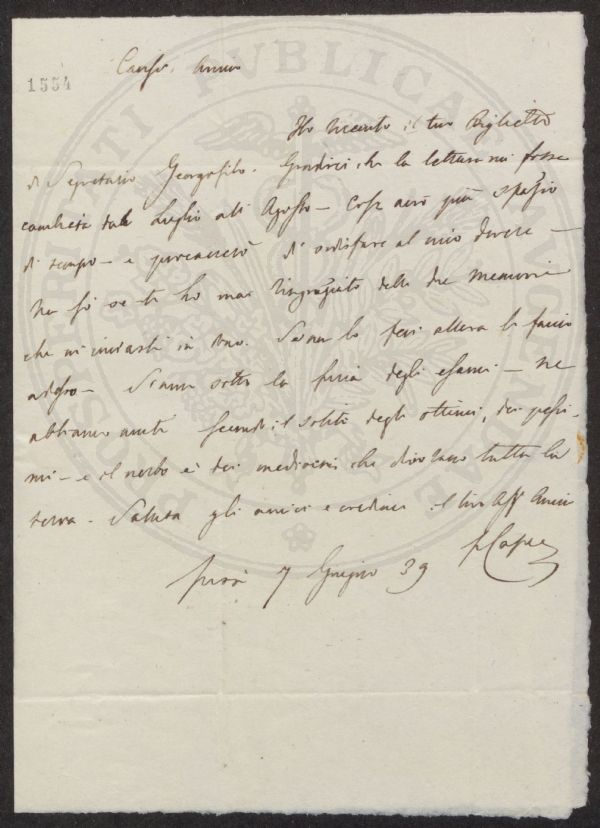 1554
Cariss. Amico
Ho ricevuto il tuo Biglietto
di Segretario Georgofilo. Gradirei che la lettura mi fosse
cambiata dal Luglio all Agosto – Così avrò più spazio
di tempo – e procurerò di sodisfare al mio dovere –
Non so se ti ho mai ringraziato delle due memorie
che mi inviasti in dono. Se non lo feci allora lo faccio
adesso – Siamo sotto la furia degli esami – ne
abbiamo avuti secondo il solito degli ottimi, dei pessi-
mi – e il nerbo è dei mediocri che divorano tutta la
terra – Saluta gli amici e credimi il tuo Aff Amico
Pisa 7 Giugno 39
PROSPERITATI PUBLICAE AUGENDAE